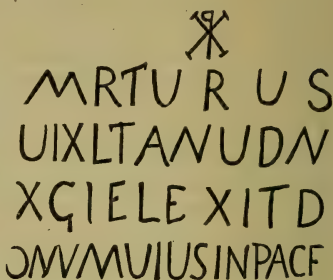 MRTURUS
UIXLTANUDN
XGIELEXITD
ƆNVMUIUSINPACE